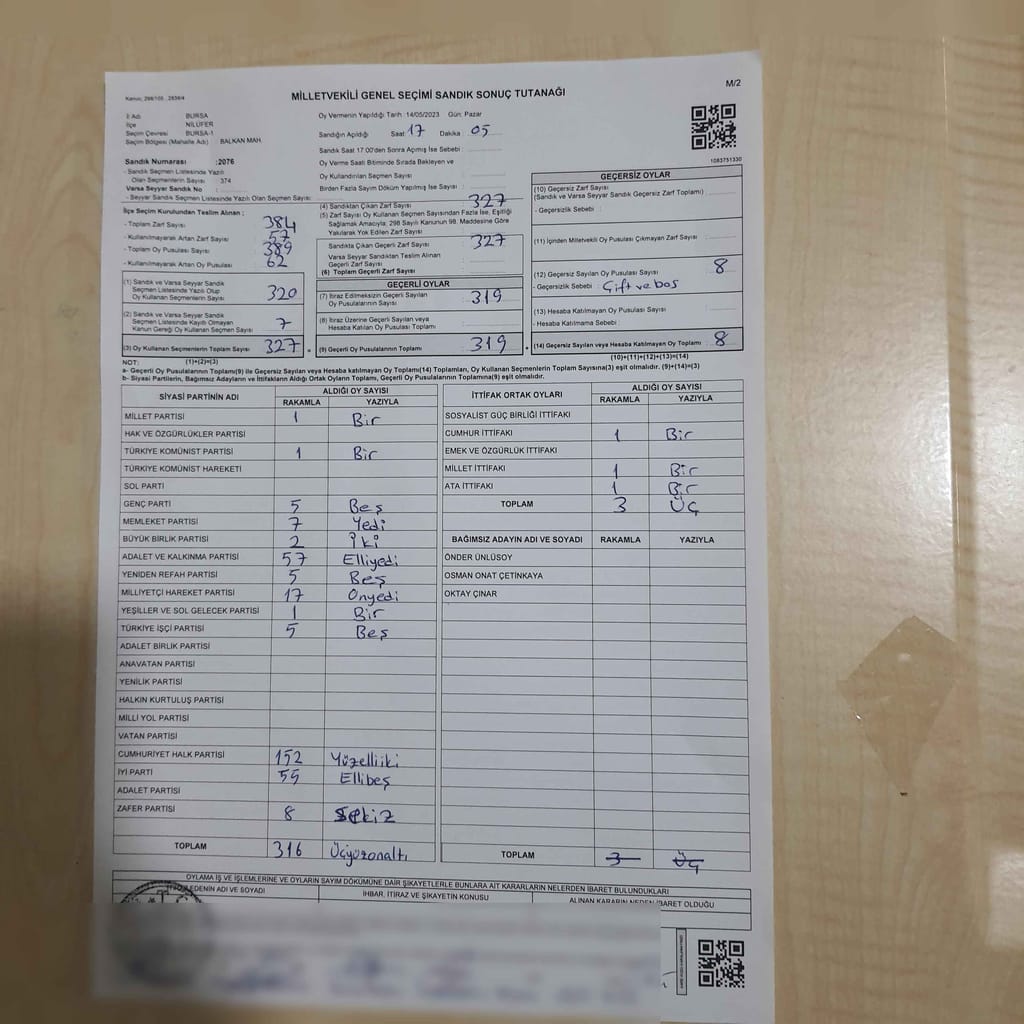 Kanun: 298/105 , 2839/4
MİLLETVEKİLİ GENEL SEÇİMİ SANDIK SONUÇ TUTANAĞI
M/2
İl Adı : BURSA
İlçe : NİLÜFER
Seçim Çevresi : BURSA-1
Seçim Bölgesi (Mahalle Adı) : BALKAN MAH
Sandık Numarası :2076
- Sandık Seçmen Listesinde Yazılı
Olan Seçmenlerin Sayısı : 374
Varsa Seyyar Sandık No :
- Seyyar Sandık Seçmen Listesinde Yazılı Olan Seçmen Sayısı:
Oy Vermenin Yapıldığı Tarih :14/05/2023 Gün: Pazar
Sandığın Açıldığı Saat: 17 Dakika : 05
Sandık Saat 17.00'den Sonra Açımış İse Sebebi :
Oy Verme Saati Bitiminde Sırada Bekleyen ve
Oy Kullandırılan Seçmen Sayısı :
Birden Fazla Sayım Döküm Yapılmış İse Sayısı :
1083751330
İlçe Seçim Kurulundan Teslim Alınan :
- Toplam Zarf Sayısı : 384
- Kullanılmayarak Artan Zarf Sayısı : 57
- Toplam Oy Pusulası Sayısı : 389
- Kullanılmayarak Artan Oy Pusulası : 62
(1) Sandık ve Varsa Seyyar Sandık
Seçmen Listesinde Yazılı Olup
Oy Kullanan Seçmenlerin Sayısı : 320
(2) Sandık ve Varsa Seyyar Sandık
Seçmen Listesinde Kayıtlı Olmayan
Kanun Gereği Oy Kullanan Seçmen Sayısı : 7
(3) Oy Kullanan Seçmenlerin Toplam Sayısı : 327
(1)+(2)=(3)
(4) Sandıktan Çıkan Zarf Sayısı : 327
(5) Zarf Sayısı Oy Kullanan Seçmen Sayısından Fazla İse, Eşitliği
Sağlamak Amacıyla; 298 Sayılı Kanunun 98. Maddesine Göre
Yakılarak Yok Edilen Zarf Sayısı :
Sandıkta Çıkan Geçerli Zarf Sayısı : 327
Varsa Seyyar Sandıktan Teslim Alınan
Geçerli Zarf Sayısı :
(6) Toplam Geçerli Zarf Sayısı :
GEÇERLİ OYLAR
(7) İtiraz Edilmeksizin Geçerli Sayılan
Oy Pusulalarının Sayısı : 319
(8) İtiraz Üzerine Geçerli Sayılan veya
Hesaba Katılan Oy Pusulası Toplamı :
= (9) Geçerli Oy Pusulalarının Toplamı : 319
GEÇERSİZ OYLAR
(10) Geçersiz Zarf Sayısı
(Sandık ve Varsa Seyyar Sandık Geçersiz Zarf Toplamı) :
- Geçersizlik Sebebi :
(11) İçinden Milletvekili Oy Pusulası Çıkmayan Zarf Sayısı :
(12) Geçersiz Sayılan Oy Pusulası Sayısı : 8
- Geçersizlik Sebebi : Çift ve boş
(13) Hesaba Katılmayan Oy Pusulası Sayısı :
- Hesaba Katılmama Sebebi :
+ (14) Geçersiz Sayılan veya Hesaba Katılmayan Oy Toplamı : 8
(10)+(11)+(12)+(13)=(14)
NOT:
a- Geçerli Oy Pusulası Toplamı(9) ile Geçersiz Sayılan veya Hesaba Katılmayan Oy Toplamı(14) Toplamları, Oy Kullanan Seçmenlerin Toplam Sayısına(3) eşit olmalıdır. (9)+(14)=(3)
b- Siyasi Partilerin, Bağımsız Adayların ve İttifakların Aldığı Ortak Oyların Toplamı, Geçerli Oy Pusulalarının Toplamına(9) eşit olmalıdır.
SİYASİ PARTİNİN ADI ALDIĞI OY SAYISI
RAKAMLA YAZIYLA
MİLLET PARTİSİ 1 Bir
HAK VE ÖZGÜRLÜKLER PARTİSİ
TÜRKİYE KOMÜNİST PARTİSİ 1 Bir
TÜRKİYE KOMÜNİST HAREKETİ
SOL PARTİ
GENÇ PARTİ 5 Beş
MEMLEKET PARTİSİ 7 Yedi
BÜYÜK BİRLİK PARTİSİ 2 İki
ADALET VE KALKINMA PARTİSİ 57 Elliyedi
YENİDEN REFAH PARTİSİ 5 Beş
MİLLİYETÇİ HAREKET PARTİSİ 17 Onyedi
YEŞİLLER VE SOL GELECEK PARTİSİ 1 Bir
TÜRKİYE İŞÇİ PARTİSİ 5 Beş
ADALET BİRLİK PARTİSİ
ANAVATAN PARTİSİ
YENİLİK PARTİSİ
HALKIN KURTULUŞ PARTİSİ
MİLLİ YOL PARTİSİ
VATAN PARTİSİ
CUMHURİYET HALK PARTİSİ 152 Yüzelliiki
İYİ PARTİ 55 Ellibeş
ADALET PARTİSİ
ZAFER PARTİSİ 8 Sekiz
TOPLAM 316 Üçyüzonaltı
İTTİFAK ORTAK OYLARI ALDIĞI OY SAYISI
RAKAMLA YAZIYLA
SOSYALİST GÜÇ BİRLİĞİ İTTİFAKI
CUMHUR İTTİFAKI 1 Bir
EMEK VE ÖZGÜRLÜK İTTİFAKI
MİLLET İTTİFAKI 1 Bir
ATA İTTİFAKI 1 Bir
TOPLAM 3 Üç
BAĞIMSIZ ADAYIN ADI VE SOYADI RAKAMLA YAZIYLA
ÖNDER ÜNLÜSOY
OSMAN ONAT ÇETİNKAYA
OKTAY ÇINAR
TOPLAM 3 Üç
OYLAMA İŞ VE İŞLEMLERİNE VE OYLARIN SAYIM DÖKÜMÜNE DAİR ŞİKAYETLERLE BUNLARA AİT KARARLARIN NELERDEN İBARET BULUNDUKLARI
EDENİN ADI VE SOYADI İHBAR, İTİRAZ VE ŞİKAYETİN KONUSU ALINAN KARARIN NEDEN İBARET OLDUĞU